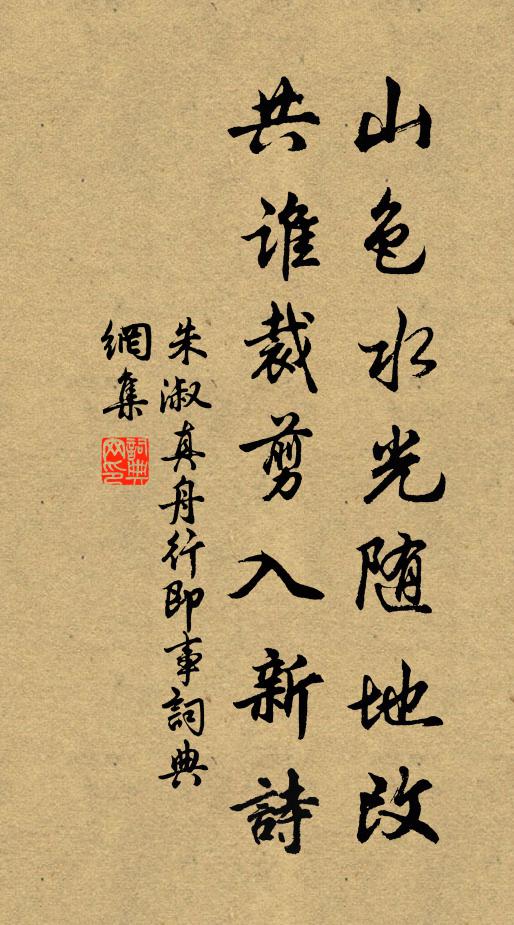 山色水光随地改
共谁裁剪入新詩
朱淑真舟行即事詞典
網集
詞典
网印